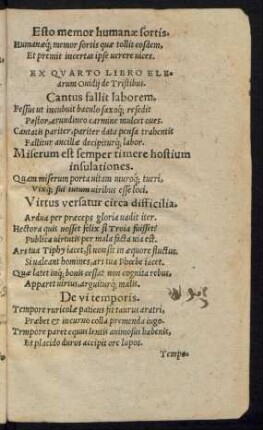 Esto memor humanæ sortis.
Humanæq; memor sortis quæ tollit eosdem,
Et premit incertas ipse uerere uices.
EX QVARTO LIBRO ELE=
arum Ouidij de Tristibus.
Cantus fallit laborem.
Fessus ut incubuit baculo saxoq; resedit
Pastor, arundineo carmine mulcet oues.
Cantatis pariter, pariter data pensa trahentis
Fallitur ancillæ decipiturq; labor.
Miserum est semper timere hostium
insulationes.
Quam miserum porta uitam muroq; tueri,
Vixq; sui tutum uiribus esse loci.
Virtus versatur circa difficilia.
Ardua per præceps gloria uadit iter.
Hectora quis nosset felix si Troia fuisset?
Publica uirtutis per mala facta uia est.
Ars tua Tiphy iacet, si non sit in æquore fluctus.
Si ualeant homines, ars tua Phœbe iacet.
Quæ latet inq; bonis cessat non cognita rebus,
Apparet uirtus, arguiturq; malis.
De vi temporis.
Tempore ruricolæ patiens fit taurus aratri,
Præbet & incuruo colla premenda iugo.
Tempore paret equus lentis animosus habenis,
Et placido duros accipit ore lupos.
Tempo-